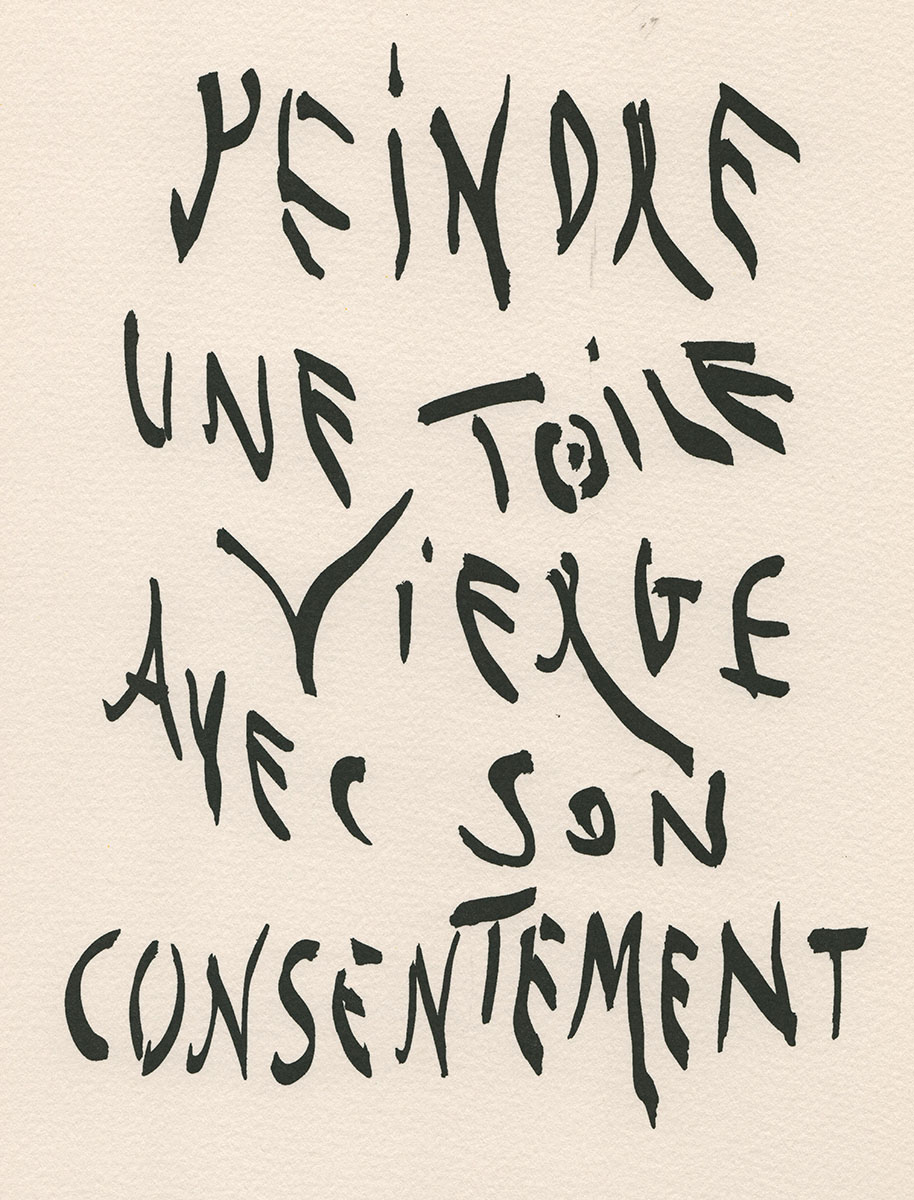 PEiNDRE
UNE TOiLE
ViERGE
AVEC SON
CONSENTEMENT